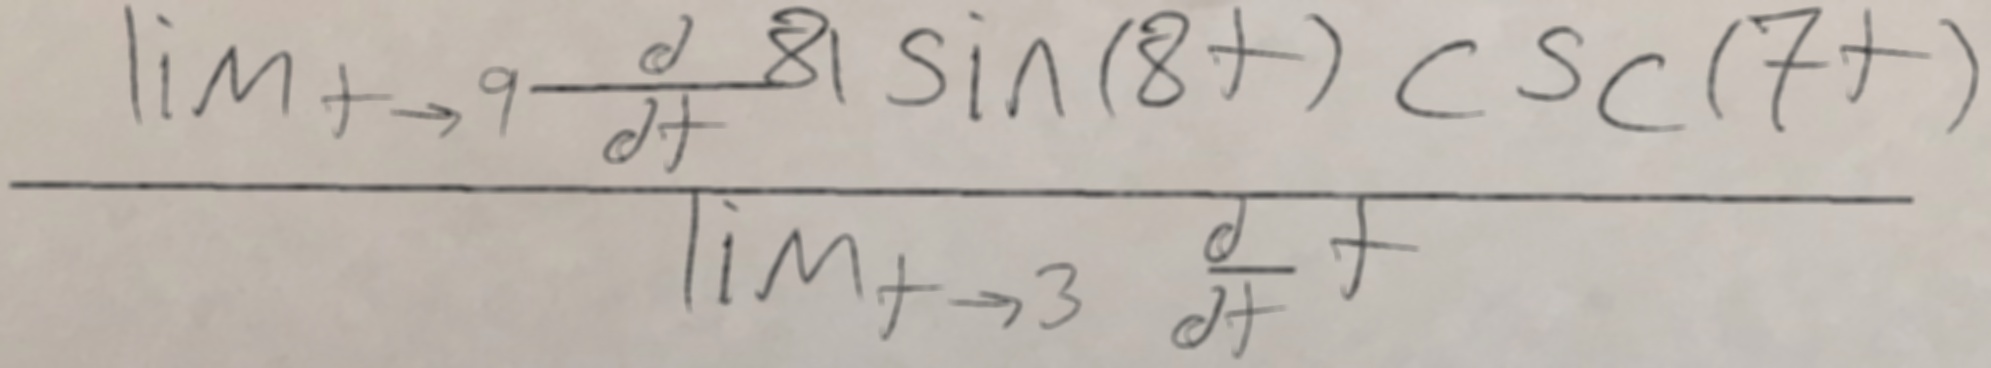 \frac{\lim_{t \to 9} \frac{d}{dt} 81 \sin(8t) \csc(7t)}{\lim_{t \to 3} \frac{d}{dt} t}